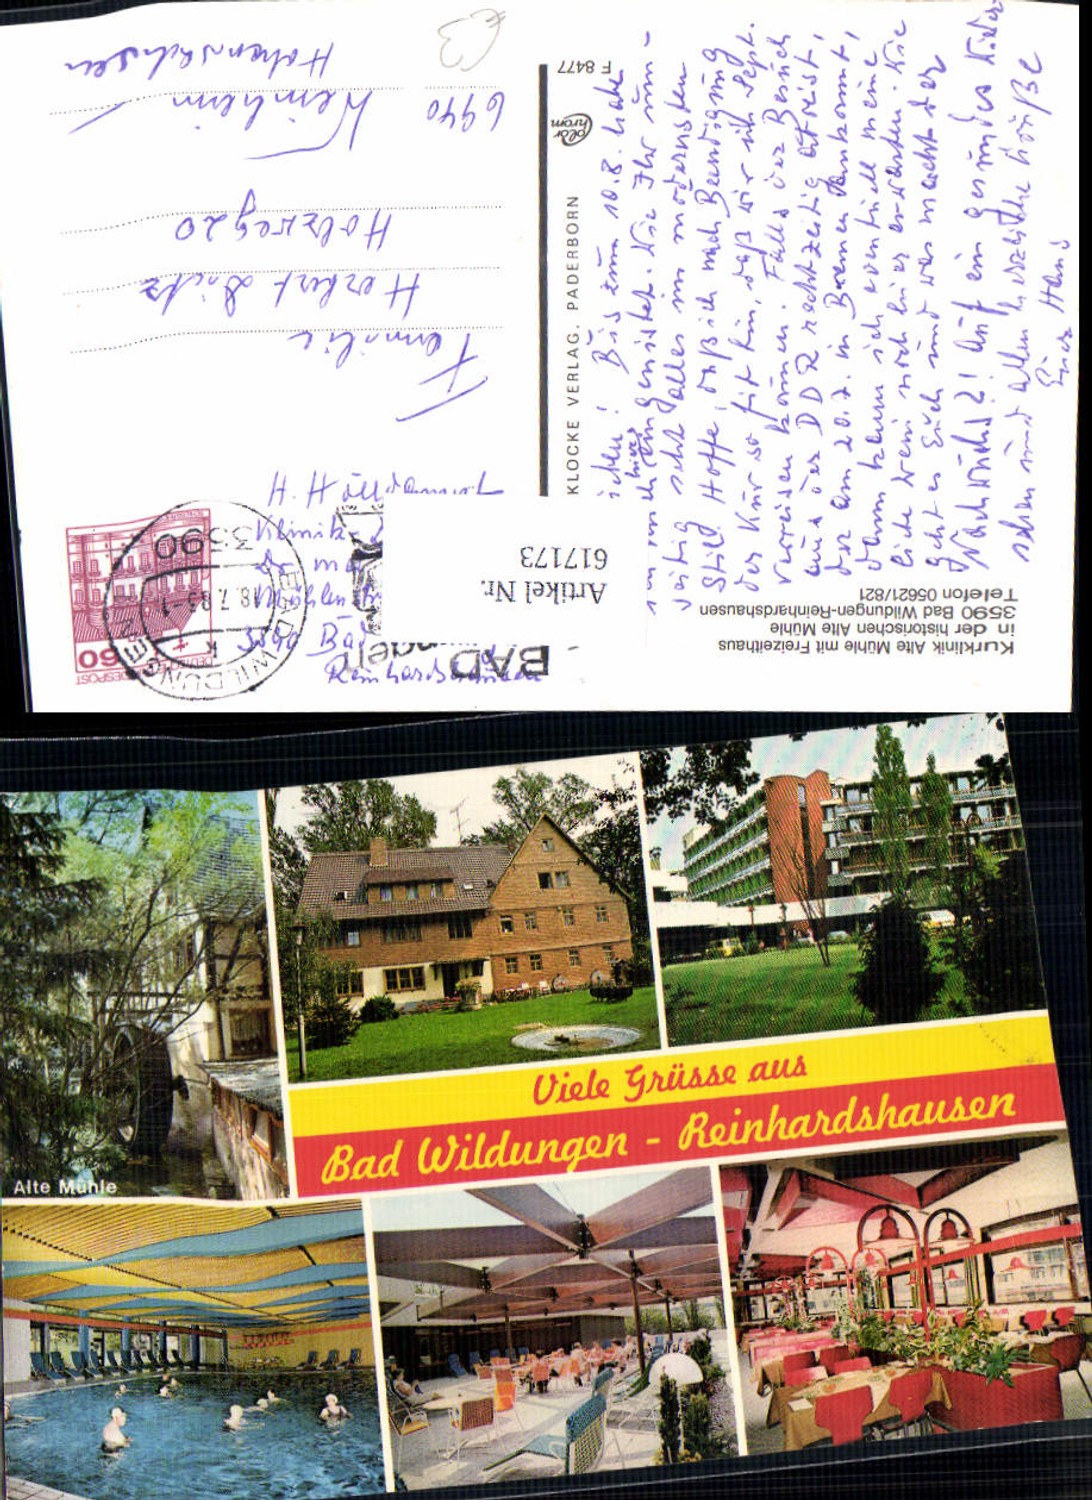 Kurklinik Alte Mühle mit Freizeithaus
in der historischen Alte Mühle
3590 Bad Wildungen-Reinhardshausen
Telefon 05621/821
KLOCKE VERLAG, PADERBORN
F 8477
Artikel Nr.
617173
BAD
3590
BAD WILDUNGEN
18.7.83
60
H. H
Klinik
Mühlen
3590 Bad
Reinhardshausen
Familie
Herbert
Holzweg 20
6940 Weinheim
Hohensachsen
€3
! Bis zum 10.8. habe
eingenistet. Wie Ihr um-
seitig seht alles im modernsten
Stil. Hoffe, daß ich nach Beendigung
der Kur so fit bin, daß wir ich Sept.
verreisen können. Falls der Besuch
aus der DDR rechtzeitig abreist,
der am 20.7. in Bremen ankommt,
dann kann ich eventuell meine
hier erwarten. Wie
geht es Euch und was macht der
Nachwuchs? Auf ein gesundes Wieder-
sehen und allen herzliche Grüße
Euer Hans
Viele Grüsse aus
Bad Wildungen - Reinhardshausen
Alte Mühle